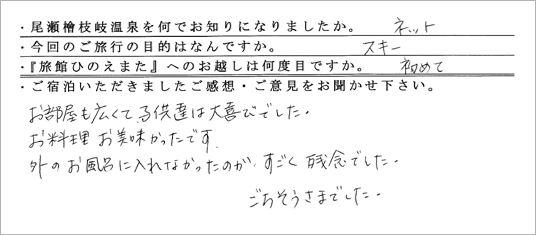 ・尾瀬檜枝岐温泉を何でお知りになりましたか。 ネット
・今回のご旅行の目的はなんですか。 スキー
・『旅館ひのえまた』へのお越しは何度目ですか。 初めて
・ご宿泊いただきましたご感想・ご意見をお聞かせ下さい。
お部屋も広くて子供達は大喜びでした。
お料理 お美味かったです.
外のお風呂に入れなかったのが、すごく残念でした。
ごちそうさまでした。